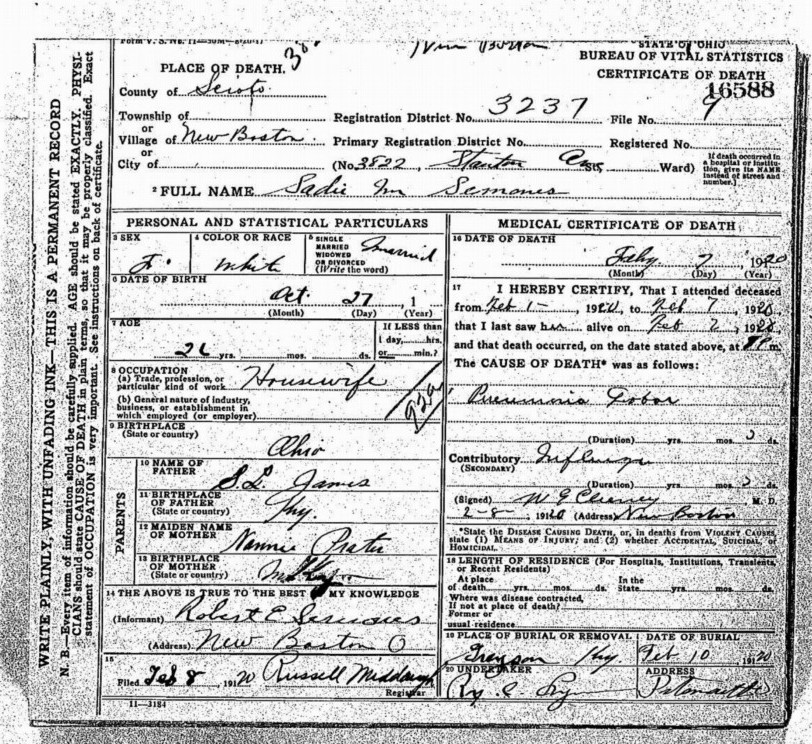 WRITE PLAINLY, WITH UNFADING INK—THIS IS A PERMANENT RECORD
N. B.—Every item of information should be carefully supplied. AGE should be stated EXACTLY. PHYSI-
CIANS should state CAUSE OF DEATH in plain terms, so that it may be properly classified. Exact
statement of OCCUPATION is very important. See instructions on back of certificate.
STATE OF OHIO
BUREAU OF VITAL STATISTICS
PLACE OF DEATH.
CERTIFICATE OF DEATH
16588
County of Scioto
Township of
Registration District No. 3237 File No. 9
or
Village of New Boston. Primary Registration District No. Registered No.
or
City of (No. 3822, Stanton St., Ward)
If death occurred in a hospital or institution, give its NAME instead of street and number.
2 FULL NAME Sadie Semones
PERSONAL AND STATISTICAL PARTICULARS
3 SEX F.
4 COLOR OR RACE White
5 SINGLE MARRIED WIDOWED OR DIVORCED (Write the word) Married
6 DATE OF BIRTH
Oct. 27, 1
(Month) (Day) (Year)
7 AGE
If LESS than
1 day, hrs.
or min.?
yrs. mos. ds.
8 OCCUPATION
(a) Trade, profession, or
particular kind of work Housewife
(b) General nature of industry,
business, or establishment in
which employed (or employer)
9 BIRTHPLACE
(State or country)
Ohio
PARENTS
10 NAME OF
FATHER S. L. James
11 BIRTHPLACE
OF FATHER
(State or country) Ky.
12 MAIDEN NAME
OF MOTHER Nannie Prater
13 BIRTHPLACE
OF MOTHER
(State or country) Ky
14 THE ABOVE IS TRUE TO THE BEST OF MY KNOWLEDGE
(Informant) Robert E Semones
(Address) New Boston O
15
Filed Feb 8, 1920 Russell Middaugh
Registrar
11—3184
MEDICAL CERTIFICATE OF DEATH
16 DATE OF DEATH
7 1920
(Month) (Day) (Year)
17 I HEREBY CERTIFY, That I attended deceased
from Feb 1, 1920, to Feb 7, 1920
that I last saw her alive on Feb 7, 19
and that death occurred, on the date stated above, at m.
The CAUSE OF DEATH* was as follows:
Pneumonia Lobar
(Duration) yrs. mos. ds.
Contributory Influenza
(SECONDARY)
(Duration) yrs. mos. ds.
(Signed) W G Cheney, M. D.
2-8, 1920 (Address) New Boston
*State the DISEASE CAUSING DEATH, or, in deaths from VIOLENT CAUSES,
state (1) MEANS OF INJURY; and (2) whether ACCIDENTAL, SUICIDAL, or
HOMICIDAL.
18 LENGTH OF RESIDENCE (For Hospitals, Institutions, Transients,
or Recent Residents)
At place In the
of death yrs. mos. ds. State yrs. mos. ds.
Where was disease contracted,
If not at place of death?
Former or
usual residence
19 PLACE OF BURIAL OR REMOVAL DATE OF BURIAL
Grayson Ky. Feb 10 1920
20 UNDERTAKER ADDRESS